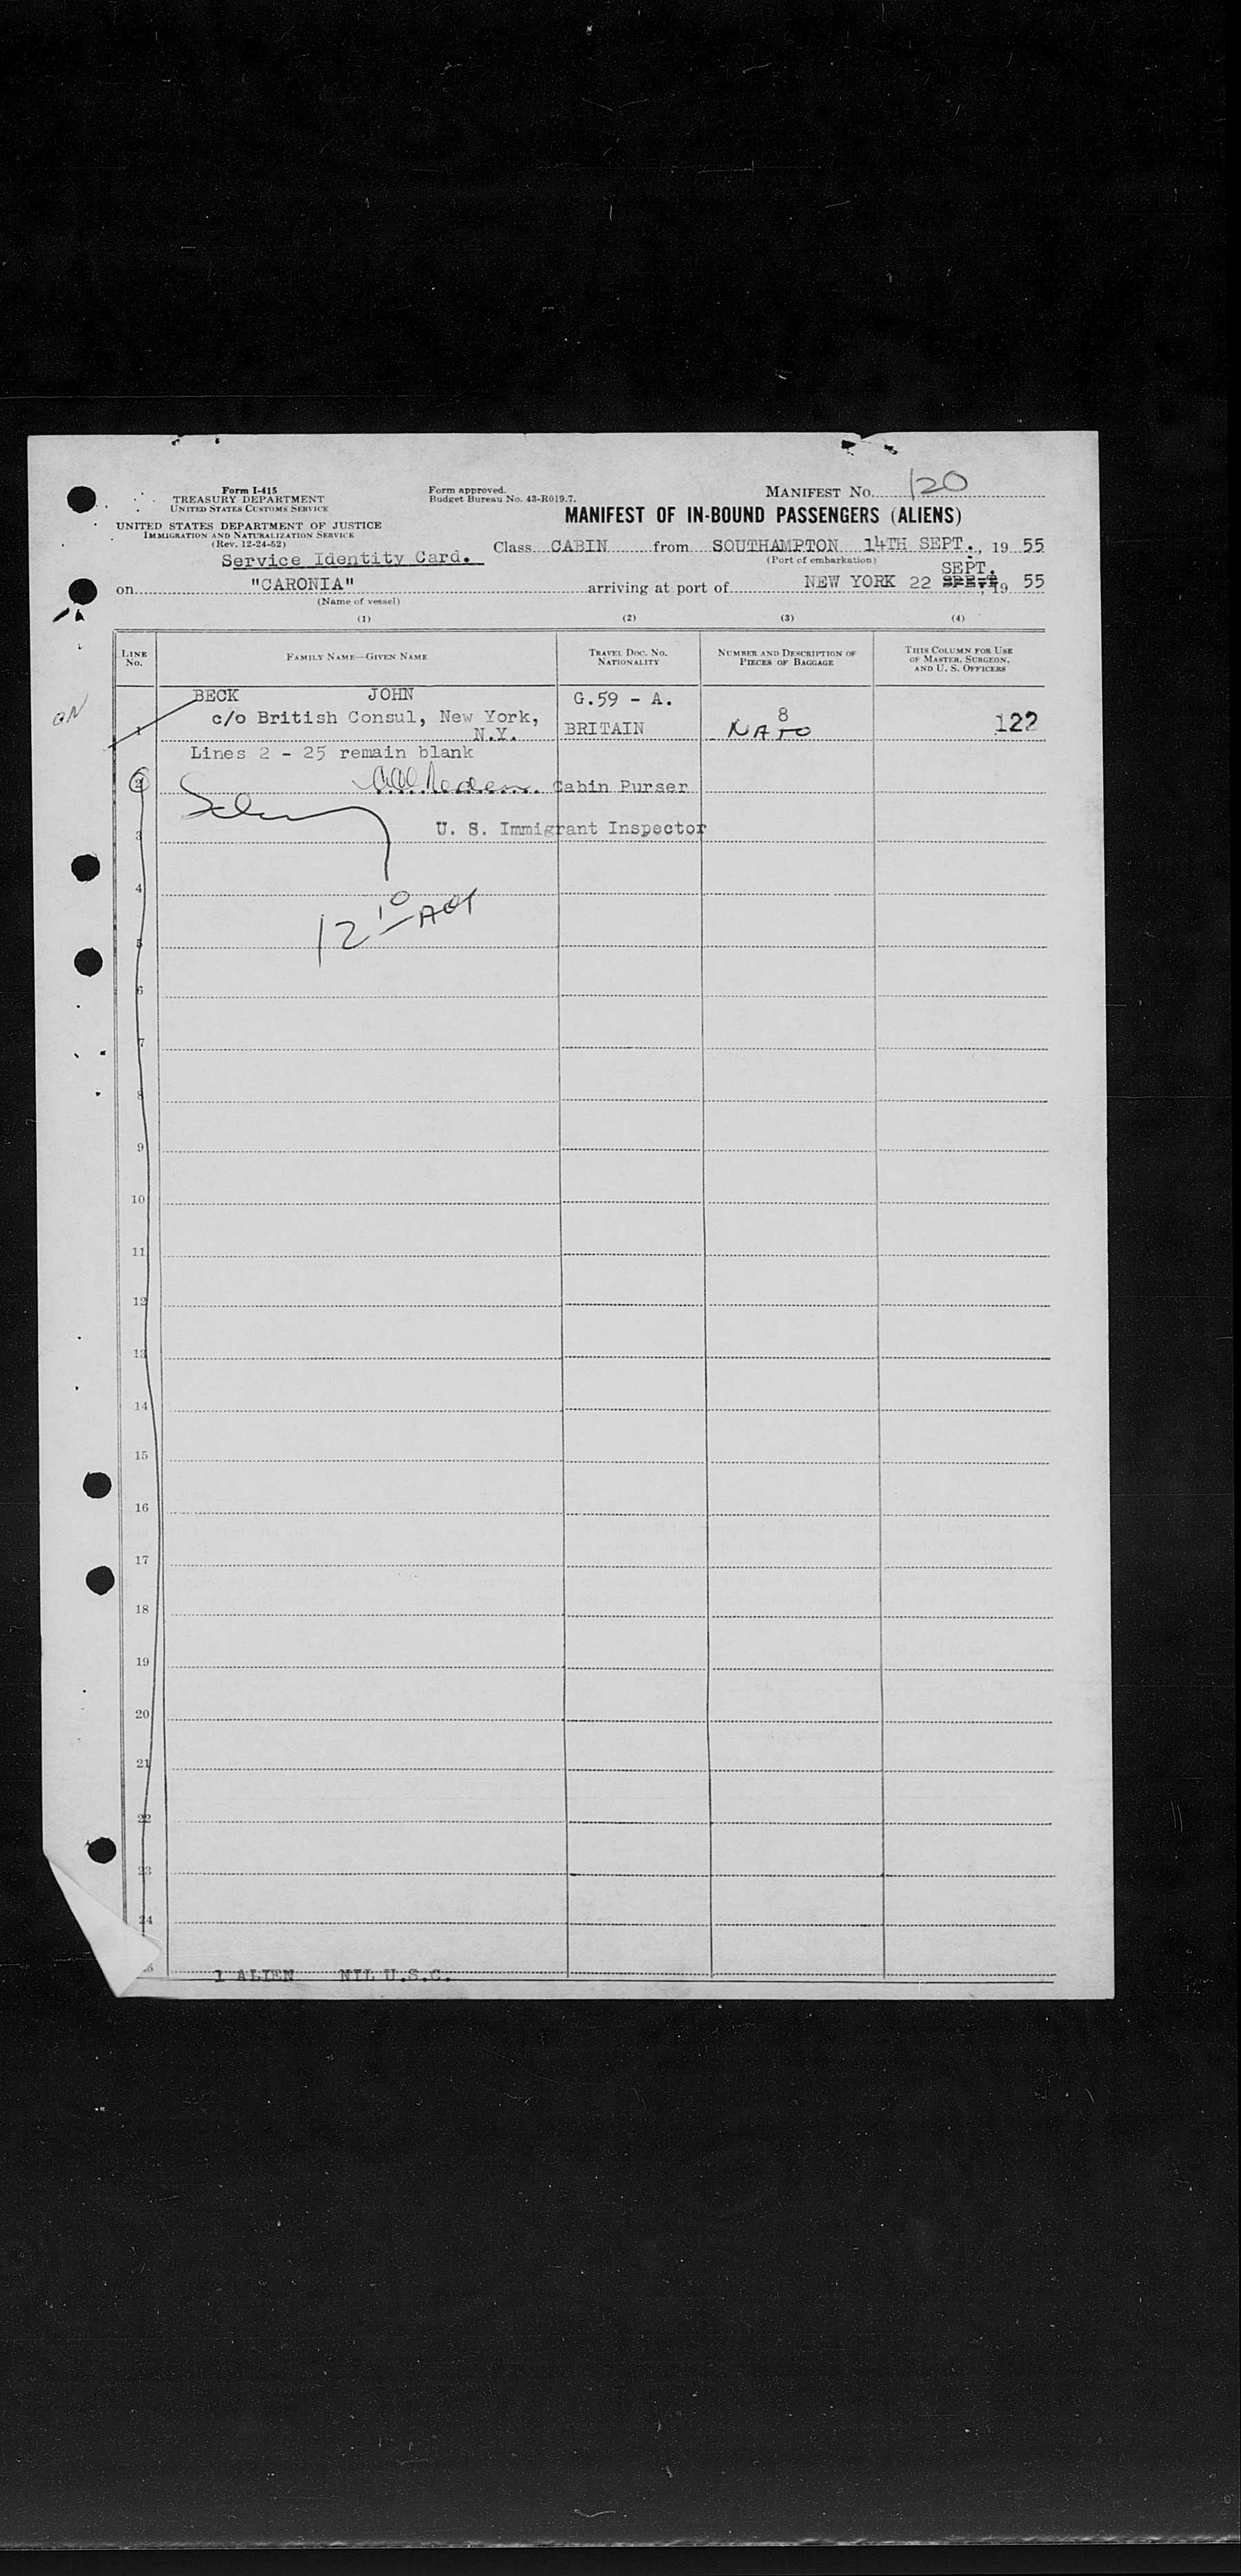 Form I-415
TREASURY DEPARTMENT
UNITED STATES CUSTOMS SERVICE
UNITED STATES DEPARTMENT OF JUSTICE
IMMIGRATION AND NATURALIZATION SERVICE
(Rev. 12-24-52)
Form approved.
Budget Bureau No. 43-R019.7.
MANIFEST NO. 120
MANIFEST OF IN-BOUND PASSENGERS (ALIENS)
Service Identity Card.
Class CABIN from SOUTHAMPTON 14TH SEPT., 19 55
(Port of embarkation)
SEPT.
on "CARONIA" arriving at port of NEW YORK 22 , 19 55
(Name of vessel)
(1) (2) (3) (4)
LINE NO.
FAMILY NAME—GIVEN NAME
TRAVEL DOC. NO.
NATIONALITY
NUMBER AND DESCRIPTION OF
PIECES OF BAGGAGE
THIS COLUMN FOR USE
OF MASTER, SURGEON,
AND U. S. OFFICERS
BECK JOHN G.59 - A.
c/o British Consul, New York, 8
1 N.Y. BRITAIN NATO 122
Lines 2 - 25 remain blank
2 Cabin Purser
3 U. S. Immigrant Inspector
4
5
6
7
8
9
10
11
12
13
14
15
16
17
18
19
20
21
22
23
24
1 ALIEN NIL U.S.C.